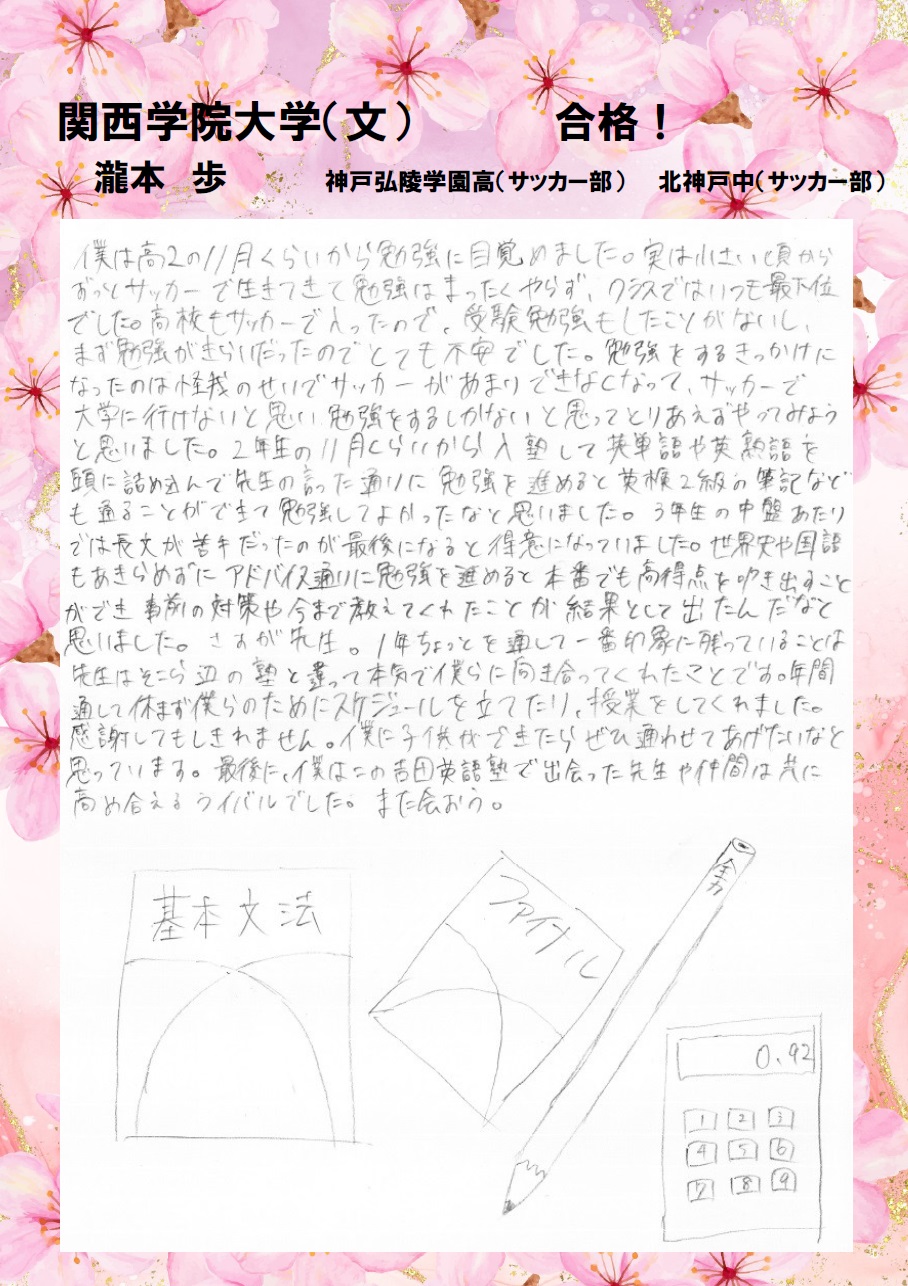 関西学院大学(文) 合格！
瀧本 歩 神戸弘陵学園高(サッカー部) 北神戸中(サッカー部)
僕は高2の11月くらいから勉強に目覚めました。実は小さい頃から
ずっとサッカーで生きてきて勉強はまったくやらず、クラスではいつも最下位
でした。高校もサッカーで入ったので、受験勉強もしたことがないし、
まず勉強がきらいだったのでとても不安でした。勉強をするきっかけに
なったのは怪我のせいでサッカーがあまりできなくなって、サッカーで
大学に行けないと思い勉強をするしかないと思ってとりあえずやってみよう
と思いました。2年生の11月くらいから入塾して英単語や英熟語を
頭に詰め込んで先生の言った通りに勉強を進めると英検2級の筆記など
も通ることができて勉強してよかったなと思いました。3年生の中盤あたり
では長文が苦手だったのが最後になると得意になっていました。世界史や国語
もあきらめずにアドバイス通りに勉強を進めると本番でも高得点を叩き出すこと
ができ事前の対策や今まで教えてくれたことが結果として出たんだなと
思いました。さすが先生。1年ちょっとを通して一番印象に残っていることは
先生はそこら辺の塾と違って本気で僕らに向き合ってくれたことです。年間
通して休まず僕らのためにスケジュールを立てたり、授業をしてくれました。
感謝してもしきれません。僕に子供ができたらぜひ通わせてあげたいなと
思っています。最後に、僕はこの吉田英語塾で出会った先生や仲間は共に
高め合えるライバルでした。また会おう。
基本文法
ファイナル
全力
0.92
1 2 3
4 5 6
7 8 9